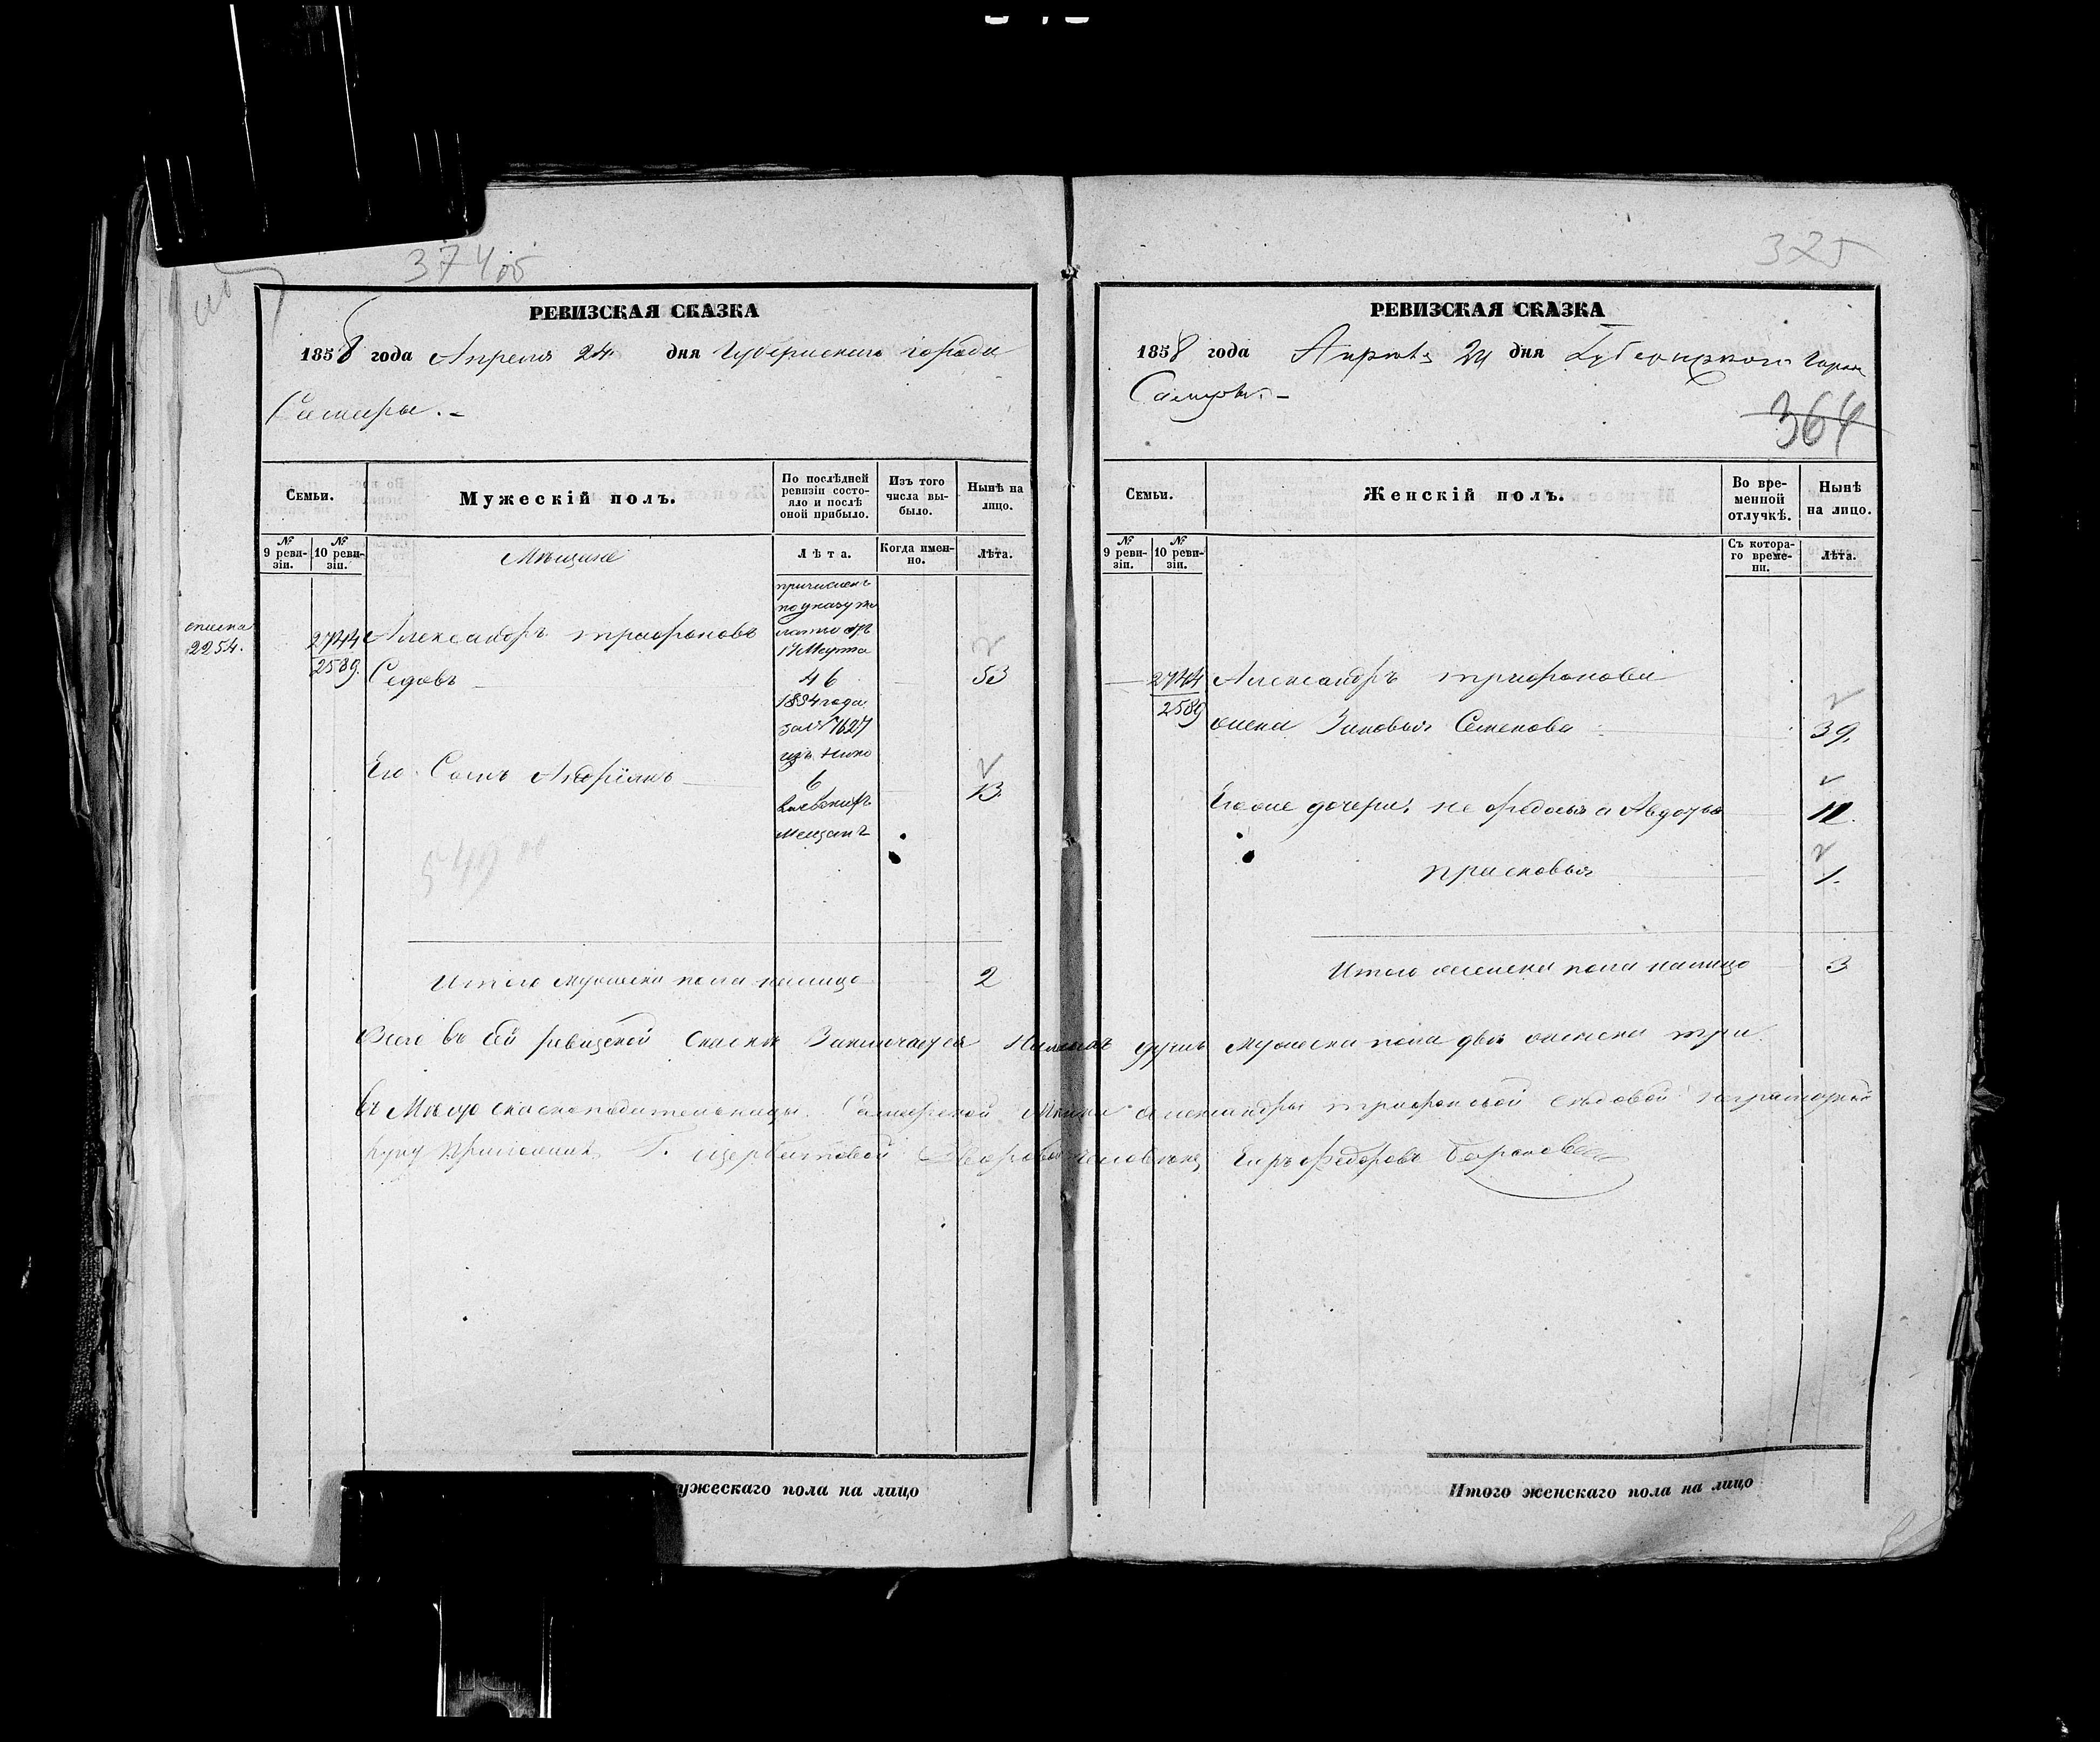 374 об
РЕВИЗСКАЯ СКАЗКА
1858 года Апреля 24 дня Губернскаго города
Самары. –
Семьи.
Мужескій полъ.
По послѣдней ревизіи состояло и послѣ оной прибыло.
Изъ того числа выбыло.
Нынѣ на лицо.
№ 9 ревизіи.
№ 10 ревизіи.
Мѣщане
Лѣта.
Когда именно.
Лѣта.
2254.
2744
2589.
Александръ Трифоновъ
Седовъ
причисленъ
по указу
17 Марта
46
1854 года
за № 7627
изъ Нико
53
Его Сынъ Андріянъ
6
Мещанъ
13
549
Итого мужеска пола налицо
2
325
РЕВИЗСКАЯ СКАЗКА
1858 года Апреля 24 дня Губернскаго города
Самары. –
364
Семьи.
Женскій полъ.
Во временной отлучкѣ.
Нынѣ на лицо.
№ 9 ревизіи.
№ 10 ревизіи.
Съ котораго времени.
Лѣта.
2744
2589
Александръ Трифонова
жена Зиновья Семенова
39.
Его же дочери, не Федосья а Авдотья
11.
Прасковья
1.
Итого женска пола налицо
3
Всего въ сей ревизской скаске заключается душъ мужеска пола две женска три.
въ Место скаскоподательницы Самарской Александры Трифоновой Седовой неграмотной
руку приложилъ Г. Щербатовой Дворовой человекъ Егоръ Федоровъ
мужескаго пола на лицо
Итого женскаго пола на лицо